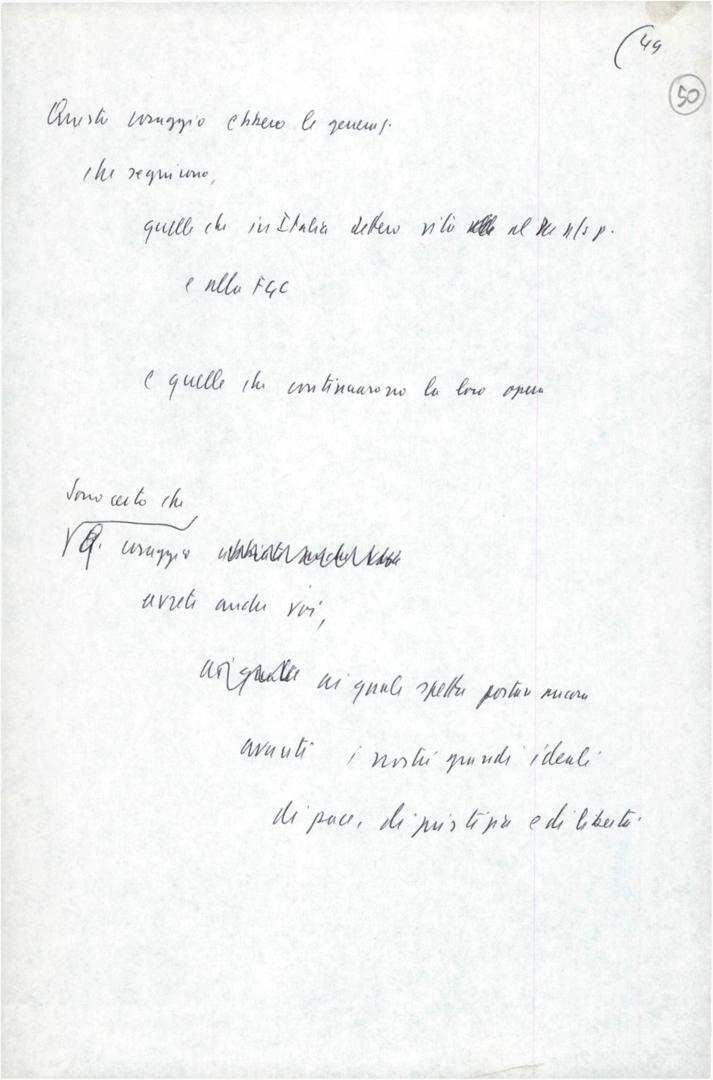 (49
50
Questo coraggio ebbero le generaz.
che seguirono,
quelle che in Italia dettero vita al n/s p.
e alla FGC
e quelle che continuarono la loro opera
Sono certo che
Q. coraggio
avrete anche voi,
ai quali spetta portare ancora
avanti i nostri grandi ideali
di pace, di giustizia e di libertà.